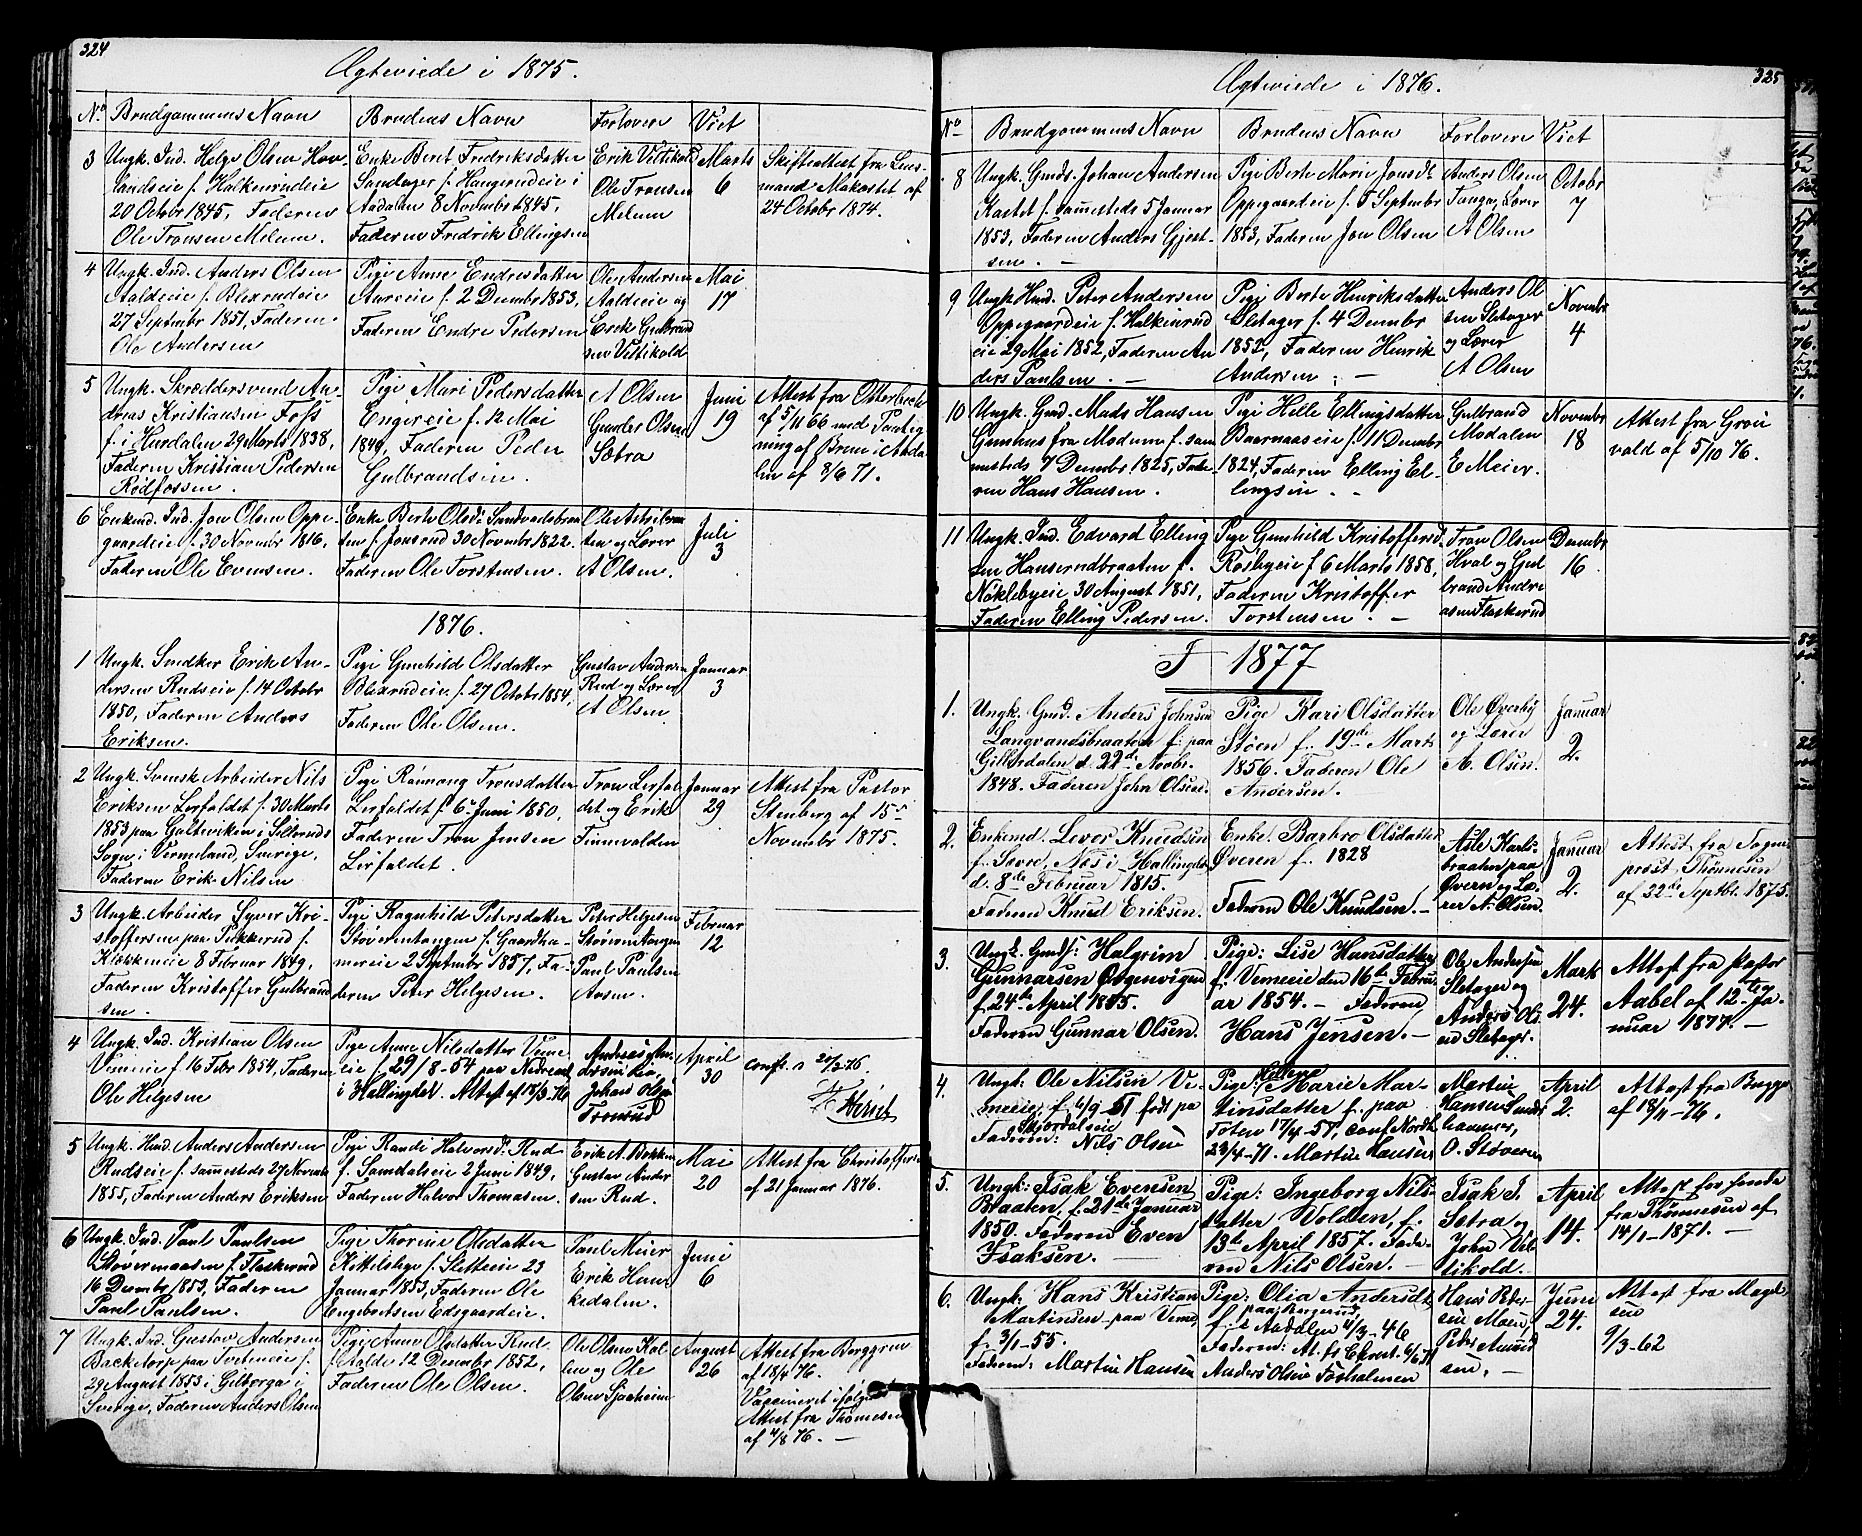 324
Ægteviede i 1875.
No Brudgommens Navn Brudens Navn Forlovere Viet
3 Ungk. Ind. Helge Olsen Hov-
landseie f. Halkinrudeie
20 Octobr 1845, Faderen
Ole Tronsen Melum.
Enke Berit Fredriksdatter
Sandager f. Haugerudeie i
Aadalen 8 Novembr 1845,
Faderen Fredrik Ellingsen
Erik Veltikold
Ole Tronsen
Melum
Marts
6
Skifteattest fra Lens-
mand Makastet af
24 Octobr 1874.
4 Ungk. Ind. Anders Olsen
Aaldeie f. Blexrudeie
27 Septembr 1851, Faderen
Ole Andersen
Pige Anne Endresdatter
Aureeie f. 2 Decembr 1853,
Faderen Endre Pedersen
Ole Andersen
Aaldeie og
Erik Gulbrand
sen Veltikold
Mai
17
5 Ungk. Skræddersvend An-
dreas Kristiansen Foss
f. i Hurdalen 29 Marts 1838,
Faderen Kristian Pedersen
Rødfossen.
Pige Mari Pedersdatter
Engereie f. 12 Mai
1849, Faderen Peder
Gulbrandsen.
A Olsen
Gunder Olsen
Sætra
Juni
19
Attest fra
af 5/11 66 med Paateg-
ning af Brun i Aada-
len af 8/6 71.
6 Enkemd. Ind. Jon Olsen Oppe-
gaardeie f. 30 Novembr 1816,
Faderen Ole Evensen.
Enke Berte Olsdr Sandvadsbraa-
ten f. Jonsrud 30 Novembr 1822.
Faderen Ole Torstensen.
Ole
ten og Lærer
A Olsen.
Juli
3
1876.
1 Ungk. Snedker Erik An-
dersen Rudseie f. 14 Octobr
1850, Faderen Anders
Eriksen.
Pige Gunhild Olsdatter
Blexrudeie f. 27 Octobr 1854,
Faderen Ole Olsen.
Gustav Andersen
Rud og Lærer
A Olsen
Januar
3
2 Ungk. Svensk Arbeider Nils
Eriksen Lerfaldet f. 30 Marts
1853 paa Galteviken i Silleruds
Sogn i Vermeland, Sverige,
Faderen Erik Nilsen
Pige Rønnoug Tronsdatter
Lerfaldet f. 6 Juni 1850,
Faderen Tron Jensen
Lerfaldet.
Tron Lerfal
det og Erik
Finnvolden
Januar
29
Attest fra Pastor
Stenberg af 15de
Novembr 1875.
3 Ungk. Arbeider Syver Kri-
stoffersen paa Pukkerud f.
Klækkeneie 8 Februar 1849,
Faderen Kristoffer Gulbrand
sen.
Pige Ragnhild Petersdatter
Støverentangen f. Gaardha-
mereie 2 Septembr 1857, Fa-
deren Peter Helgesen.
Peter Helgesen
Støverentangen
Paul Paulsen
Aasen.
Februar
12
4 Ungk. Ind. Kristian Olsen
Vemeie f 16 Febr 1854, Faderen
Ole Helgesen
Pige Anne Nilsdatter Veme
eie f. 29/8-54 paa
i Hallingdal. Attest af 15/3-76
Andreas An-
dersen
Johans Olsen
Tronrud
April
30
conf. 20/3-76.
5 Ungk. Hmd. Anders Andersen
Rudseie f. sammesteds 27 Novembr
1855, Faderen Anders Eriksen
Pige Randi Halvorsdr Rud
f. Samdalseie 2 Juni 1849,
Faderen Halvor Thomasen.
Erik A. Bekken
Gustav Ander
sen Rud.
Mai
20
Attest fra Christoffersen
af 21 Januar 1876.
6 Ungk. Ind. Paul Paulsen
Støvernaasen f. Flaskerud
16 Decembr 1853, Faderen
Paul Paulsen.
Pige Thorine Olsdatter
Kittelshyge f. Sletteeie 23
Januar 1853, Faderen Ole
Engebretsen Edsgaardeie.
Paul Meier
Erik Hunn
kedalen.
Juni
6
7 Ungk. Ind. Gustav Andersen
Backetorp paa Tveteneie f.
29 August 1853 i Gilberga i
Sverige, Faderen Anders Olsen
Pige Anne Olsdatter Rud
f. Aalde 12 Decembr 1852,
Faderen Ole Olsen.
Ole Olsen Kol-
len og Ole
Olsen Sjaaheim
August
26
Attest fra Borggren
af 18/4 76.
Vaccineret ifølge
Attest fra Thømesen
af 4/8 76. —
325
Ægteviede i 1876.
No Brudgommens Navn Brudens Navn Forlovere Viet
8 Ungk. Gmds. Johan Andersen
Kastet f. sammesteds 5 Januar
1853, Faderen Anders Gjest-
sen. —
Pige Berte Marie Jonsdr
Oppegaardeie f. 5 Septembr
1853, Faderen Jon Olsen
Anders Olsen
Tanga, Lærer
A Olsen
Octobr
7
9 Ungk. Hmd. Peter Andersen
Oppegaardeie f. Halkinrud
eie 29 Mai 1852, Faderen An
ders Paulsen. —
Pige Berte Henriksdatter
Sletager f. 4 Decembr
1852, Faderen Henrik
Andersen. —
Anders Ol
sen Sletager
og Lærer
A Olsen
Novembr
4
10 Ungk. Gmd. Mads Hansen
Gunhus fra Modum f. sam
mesteds 7 Decembr 1825, Fade-
ren Hans Hansen.
Pige Helle Ellingsdatter
Baarnaaseie f. 11 Decembr
1824, Faderen Elling El-
lingsen. —
Gulbrand
Modalen
E Meier.
Novembr
18
Attest fra Grøn
vold af 5/10 76.
11 Ungk. Ind. Edvard Elling
sen Hanserudbraaten f.
Nøklebyeie 30 August 1851,
Faderen Elling Pedersen.
Pige Gunhild Kristoffersd.
Rosbyeie f 6 Marts 1858,
Faderen Kristoffer
Torstensen. —
Tron Olsen
Hval og Gul
brand Andre
asen Flaskerud
Decembr
16
I 1877
1. Ungk. Gmd. Anders Johnsen
Langvandsbraaten f. paa
d. 22de Novbr.
1848. Faderen John Olsen.
Pige Kari Olsdatter
Støen f. 19de Marts
1856. Faderen Ole
Andersen.
Ole Øverby
og Lærer
A. Olsen.
Januar
2.
2. Enkemd. Levor Knudsen
f. Sevre, Næs i Hallingdal
d. 8de Februar 1815.
Faderen Knud Eriksen.
Enke. Barbro Olsdatter
Øveren f. 1828
Faderen Ole Knudsen. —
Asle Karls-
braaten paa
Øvern og Læ-
rer A. Olsen.
Januar
2.
Attest fra Sogne
præst Thønnesen
af 22de Septbr. 1875.
3. Ungk. Gmds: Halgrim
Gunnarsen
f. 24de April 1855.
Faderen Gunnar Olsen.
Pige: Lise Hansdatter
f. Vemeeie den 16de Febru
ar 1854. — Faderen
Hans Jensen. —
Ole Andersen
Sletager og
Anders Ol-
sen Sletager.
Marts
24.
Attest fra Pastor
Aabel af 12te Ja-
nuar 1877. —
4. Ungk: Ole Nilsen Ve-
meeie, f. 6/9-51 født pa
Skjørdalseie
Faderen: Nils Olsen
Pige: Marie Mar-
tinsdatter f. paa
Toten 17/4-57, conf
23/4-71. Martin Hansen
Martin
Hansen

O. Støveren
April
2.
Attest fra Bugge
af 18/11-76.
5. Ungk: Isak Evensen
Braaten, f. 21de Januar
1850. Faderen Even
Isaksen. —
Pige: Ingeborg Nils-
datter Volden, f.
13de April 1857. Fade-
ren Nils Olsen. —
Isak J.
Sætra og
John Vel-
tikold.
April
14.
Attest for fonde
fra Thønnesen af
14/1-1871. —
6. Ungk: Hans Kristian
Martinsen paa Veme,
f. 3/1-55.
Faderen: Martin Hansen
Pige: Olia Andersdr
f. i Aadalen 4/3-46
Faderen:
Anders Olsen
Hans Peder-
sen Moen,
Peder Amund
sen. —
Juni
24.
Attest fra Magel
sen
9/3-62